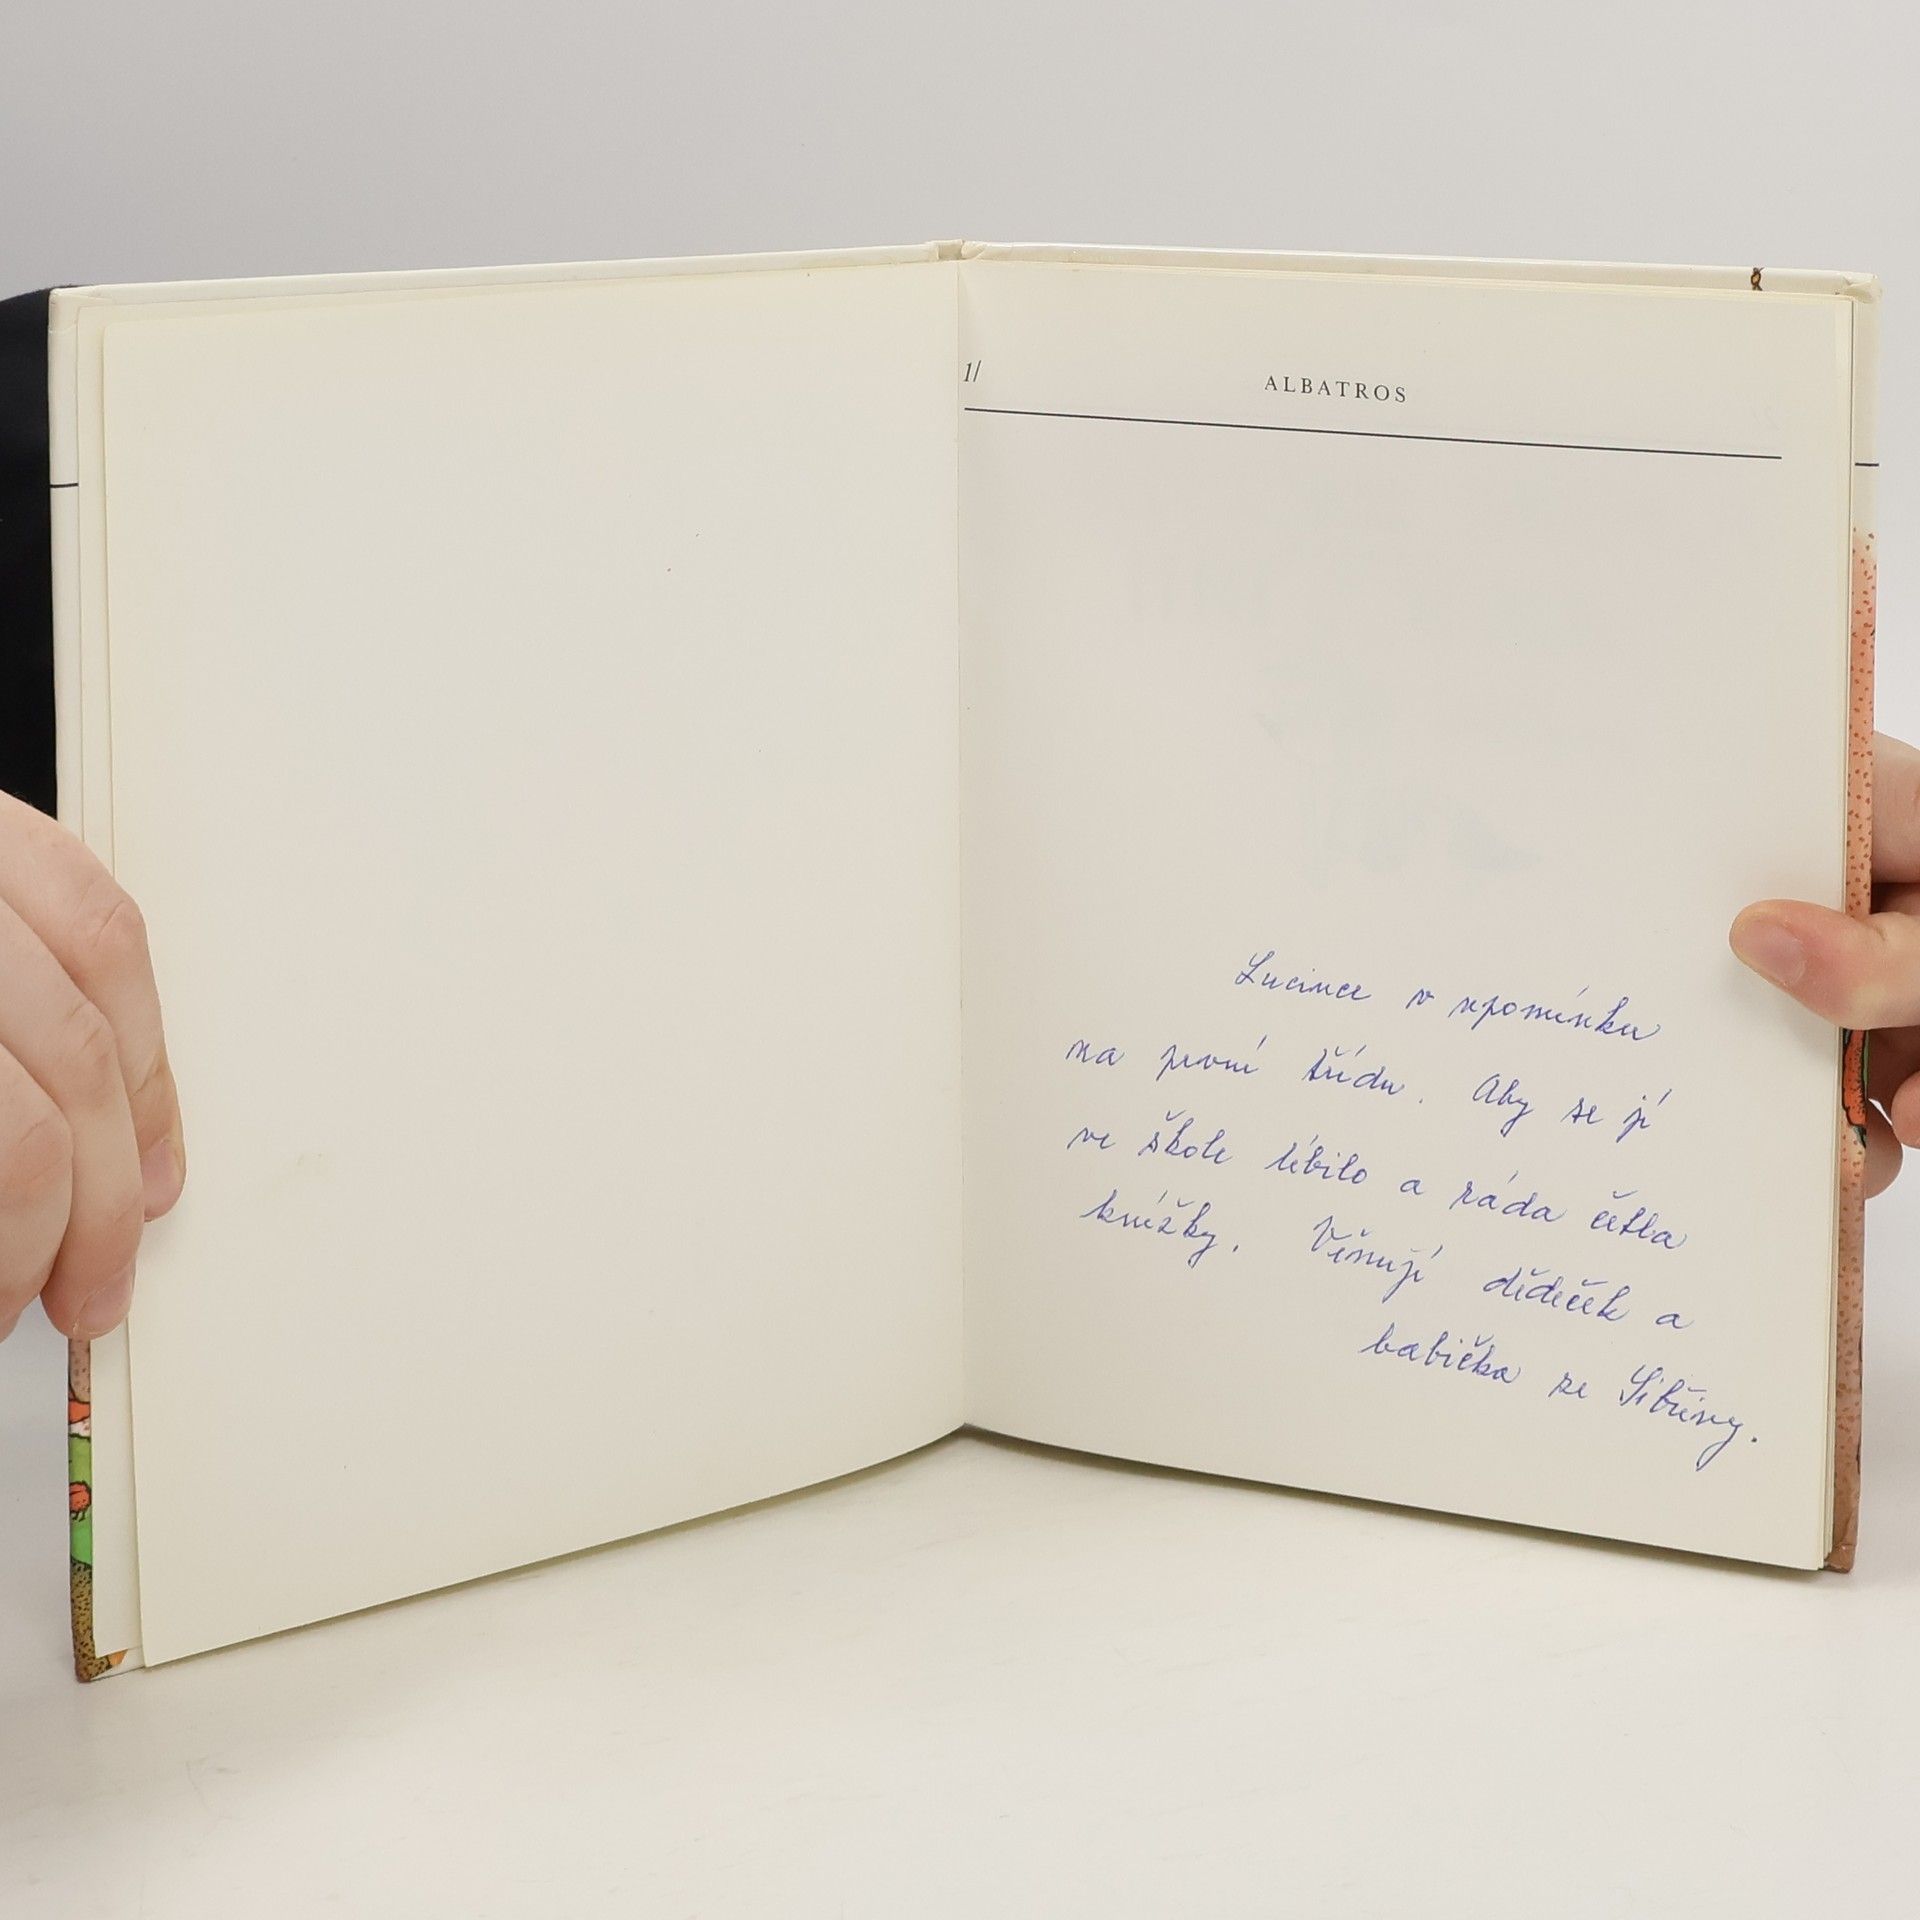 1/
ALBATROS
Lucince v upomínku
na první třídu. Aby se jí
ve škole líbilo a ráda četla
knížky. Věnují dědeček a
babička ze Sibřiny.